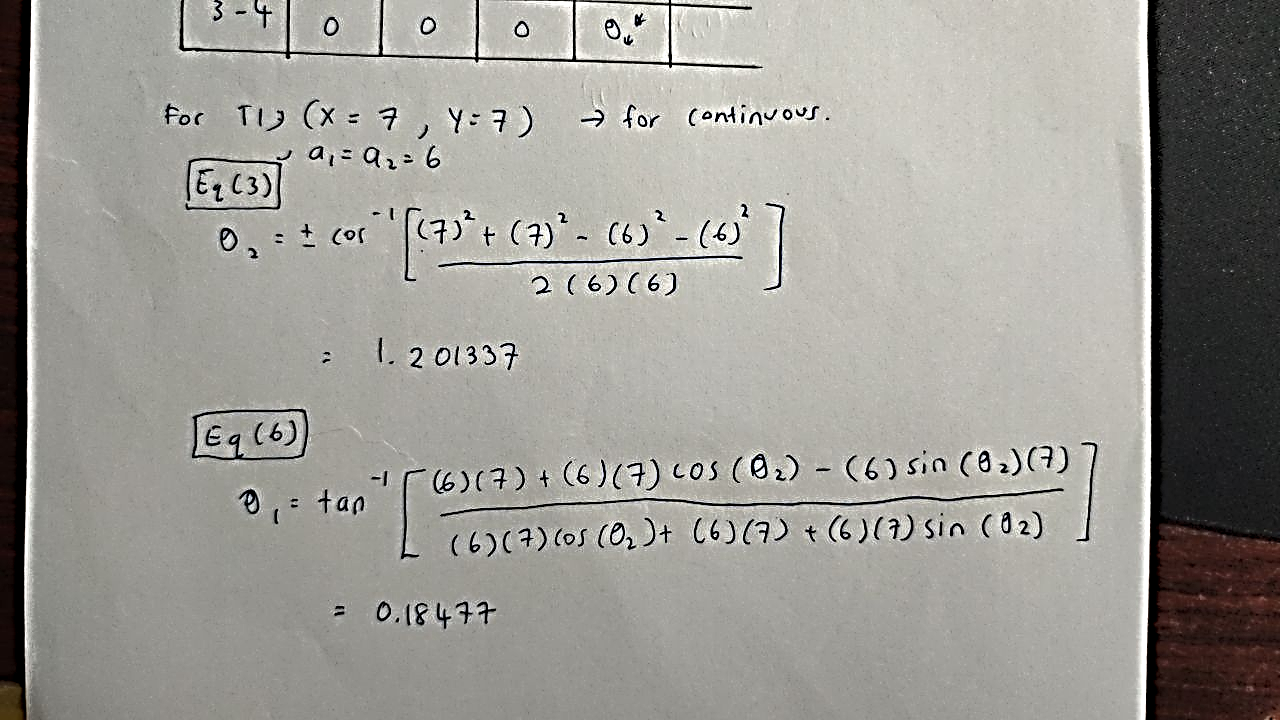 3-4 0 0 0 θ₄*
For T1, (X = 7, Y = 7) → for continuous.
, a₁ = a₂ = 6
Eq (3)
θ₂ = ± cos⁻¹ [ ((7)² + (7)² - (6)² - (6)²) / (2 (6)(6)) ]
= 1.201337
Eq (6)
θ₁ = tan⁻¹ [ ((6)(7) + (6)(7) cos (θ₂) - (6) sin (θ₂)(7)) / ((6)(7) cos (θ₂) + (6)(7) + (6)(7) sin (θ₂)) ]
= 0.18477